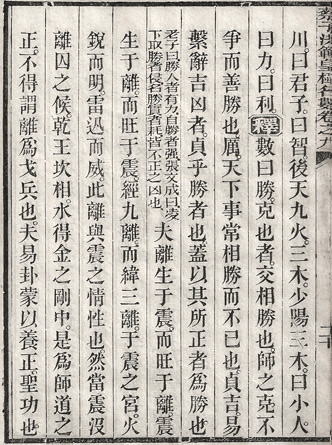 川曰君子曰智後天九火三木少陽三木曰小人
曰力曰利釋數曰勝克也者交相勝也師之克不
爭而善勝也厲天下事常相勝而不已也貞吉易
繫辭吉凶者貞乎勝者也蓋以其所正者為勝也
老子曰勝人者有力自勝者强張文成曰凌
下取勝者侵名勝實者耗皆不正之凶也
夫離生于震而旺于離震
生于離而旺于震經九離而緯三離于震之宮火
銳而明雷迅而威此離與震之情性也然當震沒
離囚之候乾王坎相水得金之剛中是為師道之
正不得謂離為戈兵也夫易卦蒙以養正聖功也